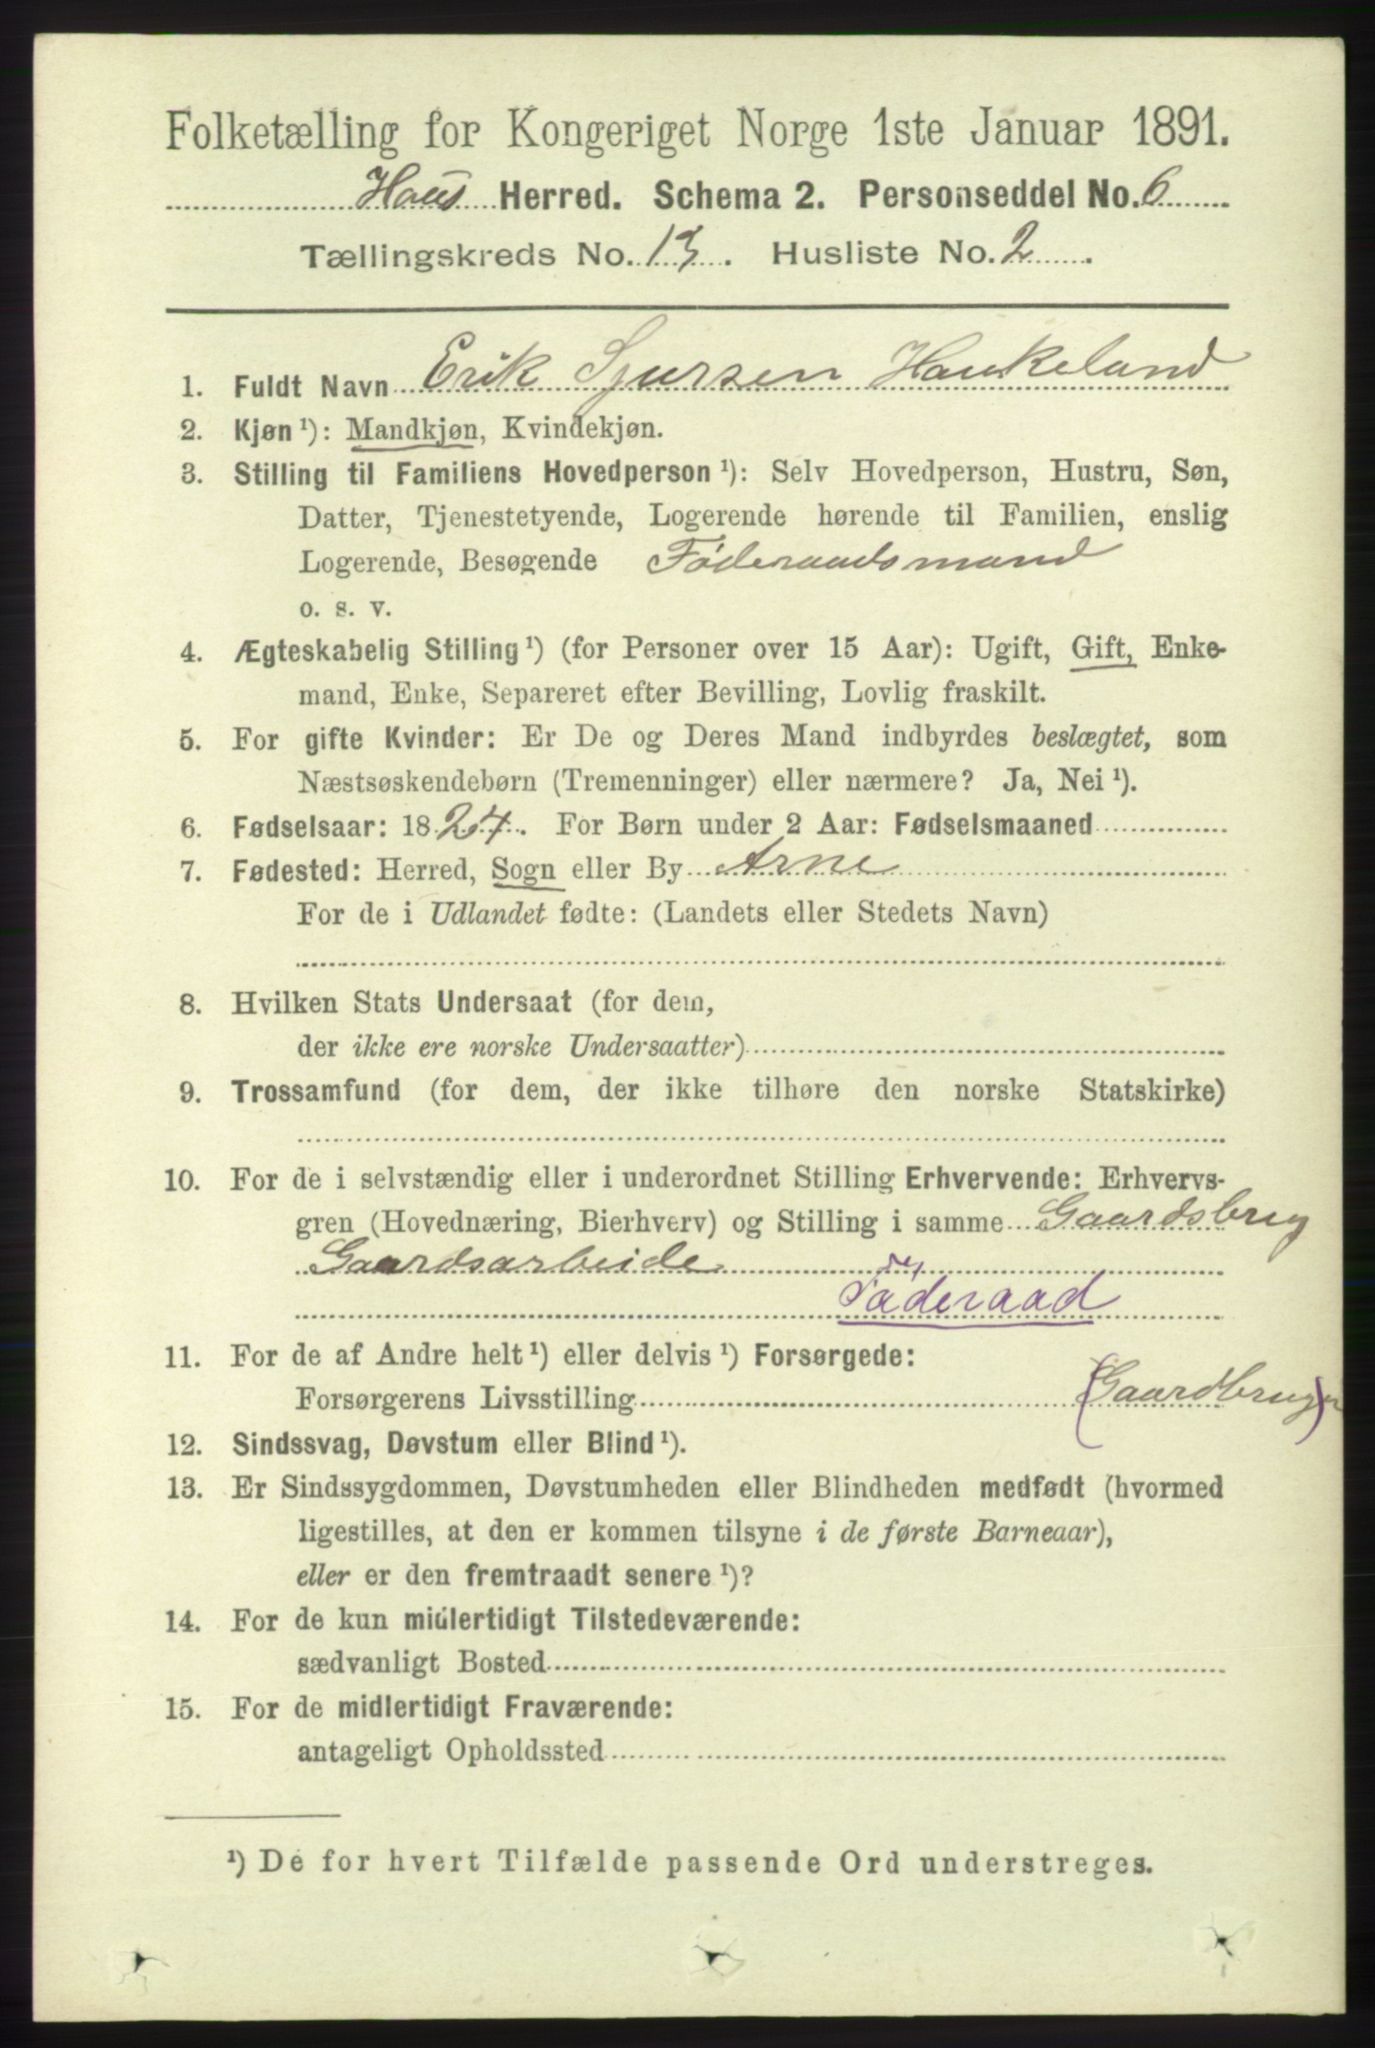 Folketælling for Kongeriget Norge 1ste Januar 1891.
Haus Herred. Schema 2. Personseddel No. 6
Tællingskreds No. 13. Husliste No. 2
1. Fuldt Navn Erik Sjursen Haukeland
2. Kjøn ¹): Mandkjøn, Kvindekjøn.
3. Stilling til Familiens Hovedperson ¹): Selv Hovedperson, Hustru, Søn,
Datter, Tjenestetyende, Logerende hørende til Familien, enslig
Logerende, Besøgende Føderaadsmand
o. s. v.
4. Ægteskabelig Stilling ¹) (for Personer over 15 Aar): Ugift, Gift, Enke-
mand, Enke, Separeret efter Bevilling, Lovlig fraskilt.
5. For gifte Kvinder: Er De og Deres Mand indbyrdes beslægtet, som
Næstsøskendebørn (Tremenninger) eller nærmere? Ja, Nei ¹).
6. Fødselsaar: 1824. For Børn under 2 Aar: Fødselsmaaned
7. Fødested: Herred, Sogn eller By Arne
For de i Udlandet fødte: (Landets eller Stedets Navn)
8. Hvilken Stats Undersaat (for dem,
der ikke ere norske Undersaatter)
9. Trossamfund (for dem, der ikke tilhøre den norske Statskirke)
10. For de i selvstændig eller i underordnet Stilling Erhvervende: Erhvervs-
gren (Hovednæring, Bierhverv) og Stilling i samme Gaardsbrug
Gaardsarbeide
Føderaad
11. For de af Andre helt ¹) eller delvis ¹) Forsørgede:
Forsørgerens Livsstilling (Gaardbruger)
12. Sindssvag, Døvstum eller Blind ¹).
13. Er Sindssygdommen, Døvstumheden eller Blindheden medfødt (hvormed
ligestilles, at den er kommen tilsyne i de første Barneaar),
eller er den fremtraadt senere ¹)?
14. For de kun midlertidigt Tilstedeværende:
sædvanligt Bosted
15. For de midlertidigt Fraværende:
antageligt Opholdssted
¹) De for hvert Tilfælde passende Ord understreges.